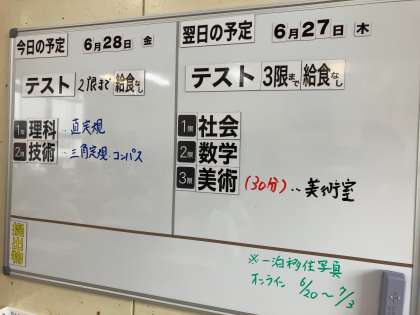 今日の予定 6月28日 金
テスト 2限まで 給食なし
1限 理科 ・直定規
2限 技術 ・三角定規・コンパス
翌日の予定 6月27日 木
テスト 3限まで 給食なし
1限 社会
2限 数学
3限 美術 (30分) ‥美術室
提出物
※一泊移住写真
オンライン 6/20〜7/3